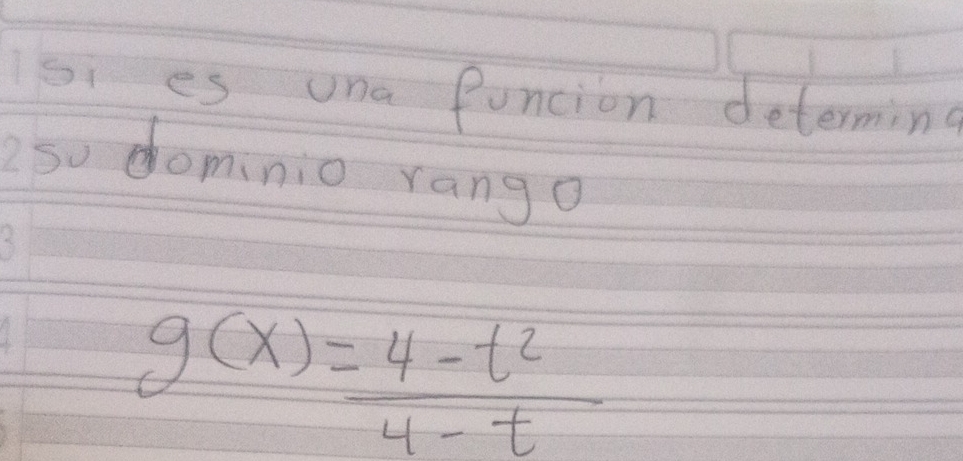 1 si es una función determina
2 su dominio rango
3
4 g(x) = 4 - t²
4 - t